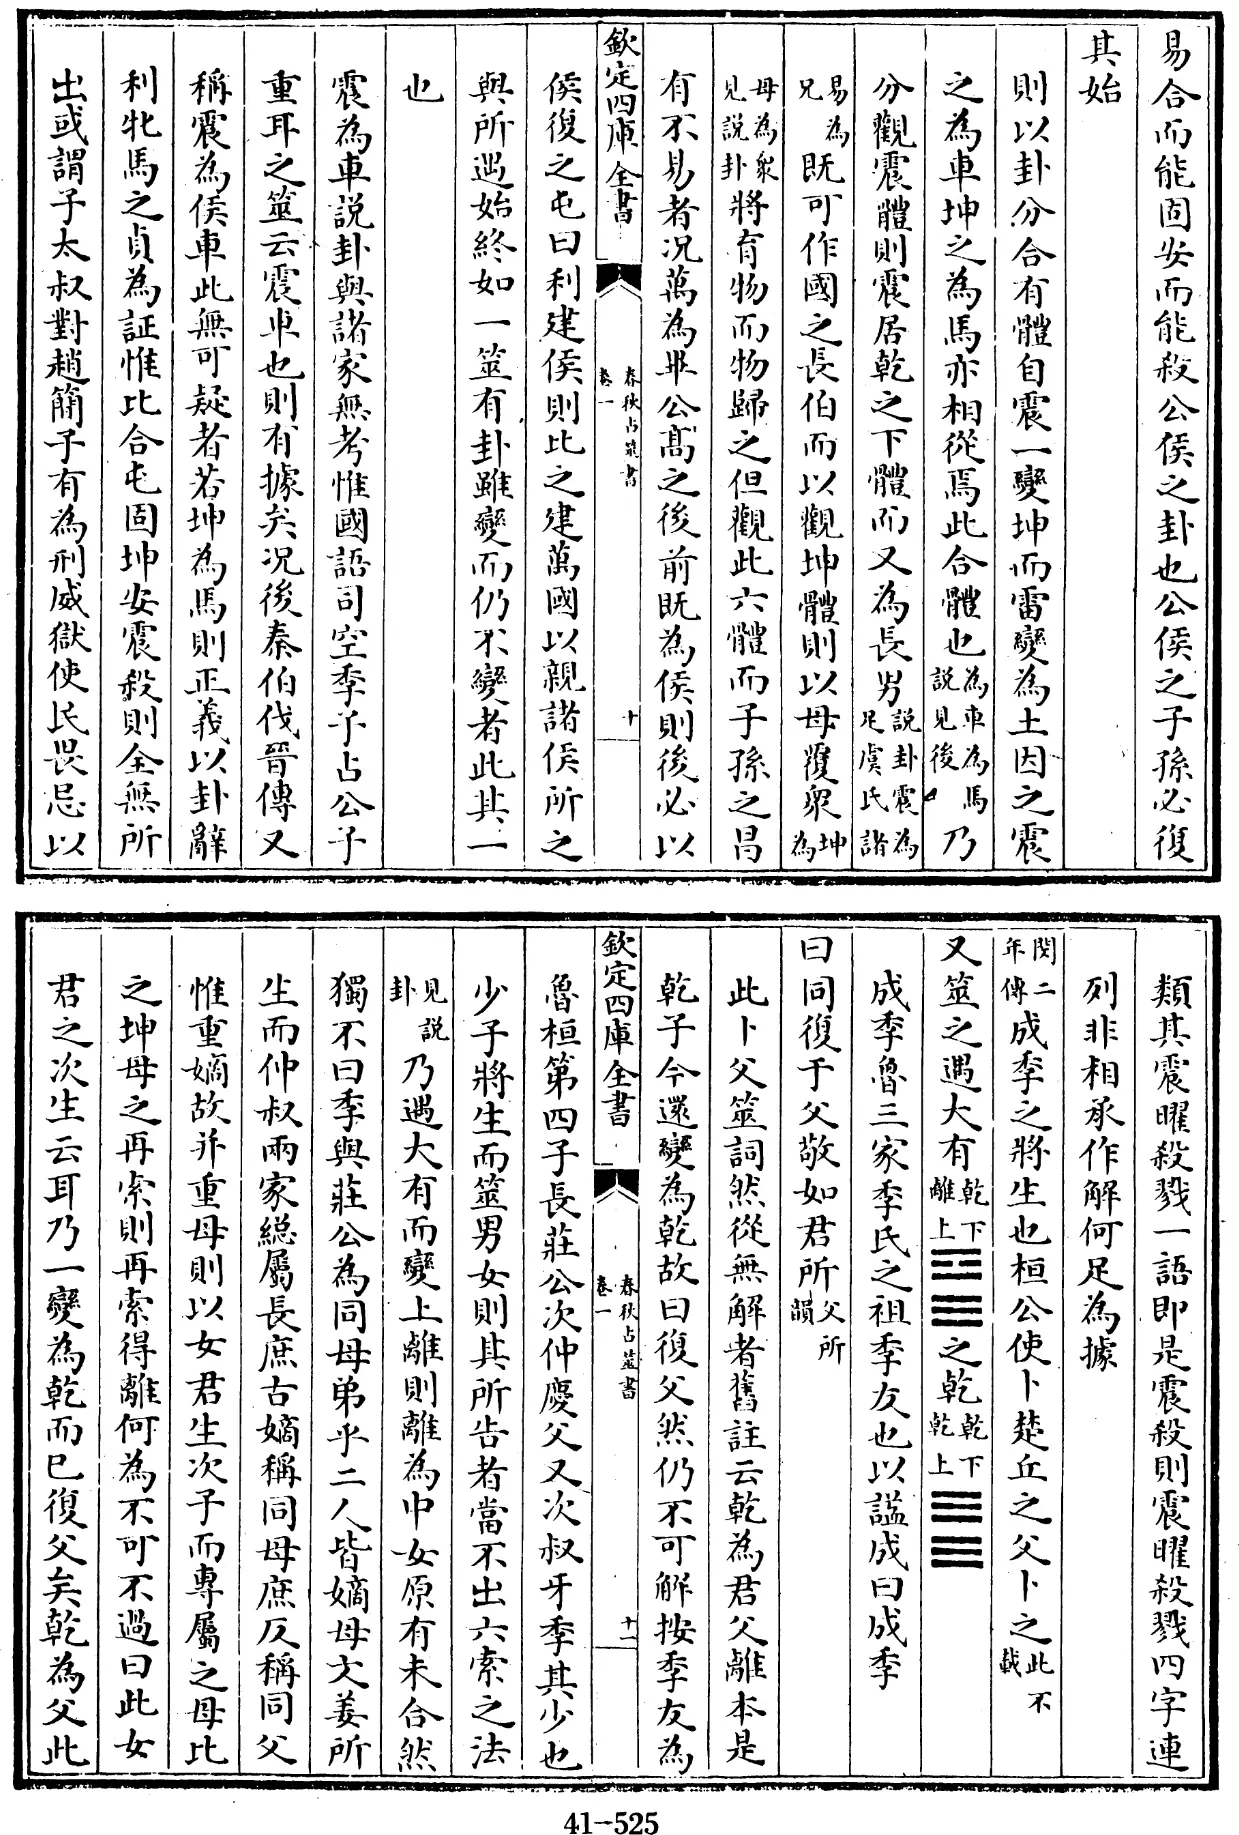 易合而能固安而能殺公侯之卦也公侯之子孫必復
其始
則以卦分合有體自震一變坤而雷變為土因之震
之為車坤之為馬亦相從焉此合體也為車為馬說見後乃
分觀震體則震居乾之下體而又為長男說卦震為足虞氏諸
易為兄既可作國之長伯而以觀坤體則以母覆衆坤為
母為衆見說卦將育物而物歸之但觀此六體而子孫之昌
有不易者况萬為畢公高之後前既為侯則後必以
欽定四庫全書
春秋占筮書
卷一
十
侯復之屯曰利建侯則比之建萬國以親諸侯所之
與所遇始終如一筮有卦雖變而仍不變者此其一
也
震為車說卦與諸家無考惟國語司空季子占公子
重耳之筮云震車也則有據矣况後秦伯伐晉傳又
稱震為侯車此無可疑者若坤為馬則正義以卦辭
利牝馬之貞為証惟比合屯固坤安震殺則全無所
出或謂子太叔對趙簡子有為刑威獄使民畏忌以
類其震曜殺戮一語即是震殺則震曜殺戮四字連
列非相承作解何足為據
閔二年傳成季之將生也桓公使卜楚丘之父卜之此不載
又筮之遇大有乾下離上䷍之乾乾下乾上䷀
成季魯三家季氏之祖季友也以謚成曰成季
曰同復于父敬如君所父所韻
此卜父筮詞然從無解者舊註云乾為君父離本是
乾子今還變為乾故曰復父然仍不可解按季友為
欽定四庫全書
春秋占筮書
卷一
十一
魯桓第四子長莊公次仲慶父又次叔牙季其少也
少子將生而筮男女則其所告者當不出六索之法
見說卦乃遇大有而變上離則離為中女原有未合然
獨不曰季與莊公為同母弟乎二人皆嫡母文姜所
生而仲叔兩家総屬長庶古嫡稱同母庶反稱同父
惟重嫡故并重母則以女君生次子而專屬之母比
之坤母之再索則再索得離何為不可不過曰此女
君之次生云耳乃一變為乾而已復父矣乾為父此
41-525